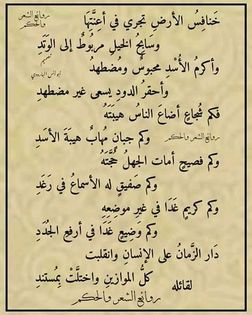 روائع الشعر والحكم
خَنافِسُ الأرضِ تجري في أعِنَّتِها
وسَابِحُ الخيلِ مربُوطٌ إلى الوَتَدِ
وأكرمُ الأُسْدِ محبوسٌ ومُضطهدٌ
وأحقرُ الدودِ يسعى غير مضطهدِ
فكم شُجاعٍ أضاعَ الناسُ هيبتَهُ
روائع الشعر والحكم
وكم جبانٍ مُهابٌ هيبةَ الأسَدِ
وكم فصيحٍ أماتَ الجهلُ حُجَّتَهُ
وكم صَفيقٍ له الأسماعُ في رَغَدِ
وكم كريمٍ غَدَا في غيرِ موضعِهِ
وكم وَضِيعٍ غَدَا في أرفعِ الجُدَدِ
دَارَ الزَّمانُ على الإنسانِ وانقلبت
كلُّ الموازينِ واختلَّتْ بِمُستندِ
لقائله
روائع الشعر والحكم